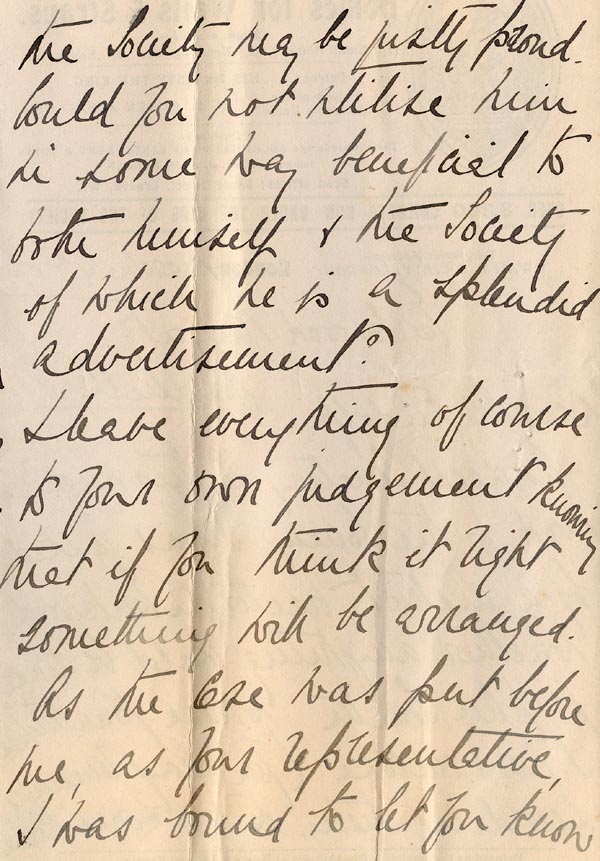 the Society may be justly proud.
Could you not utilise him
in some way beneficial to
both himself & the Society
of which he is a splendid
advertisement?
I leave everything of course
to your own judgement knowing
that if you think it right
something will be arranged.
As the case was put before
me, as your representative,
I was bound to let you know